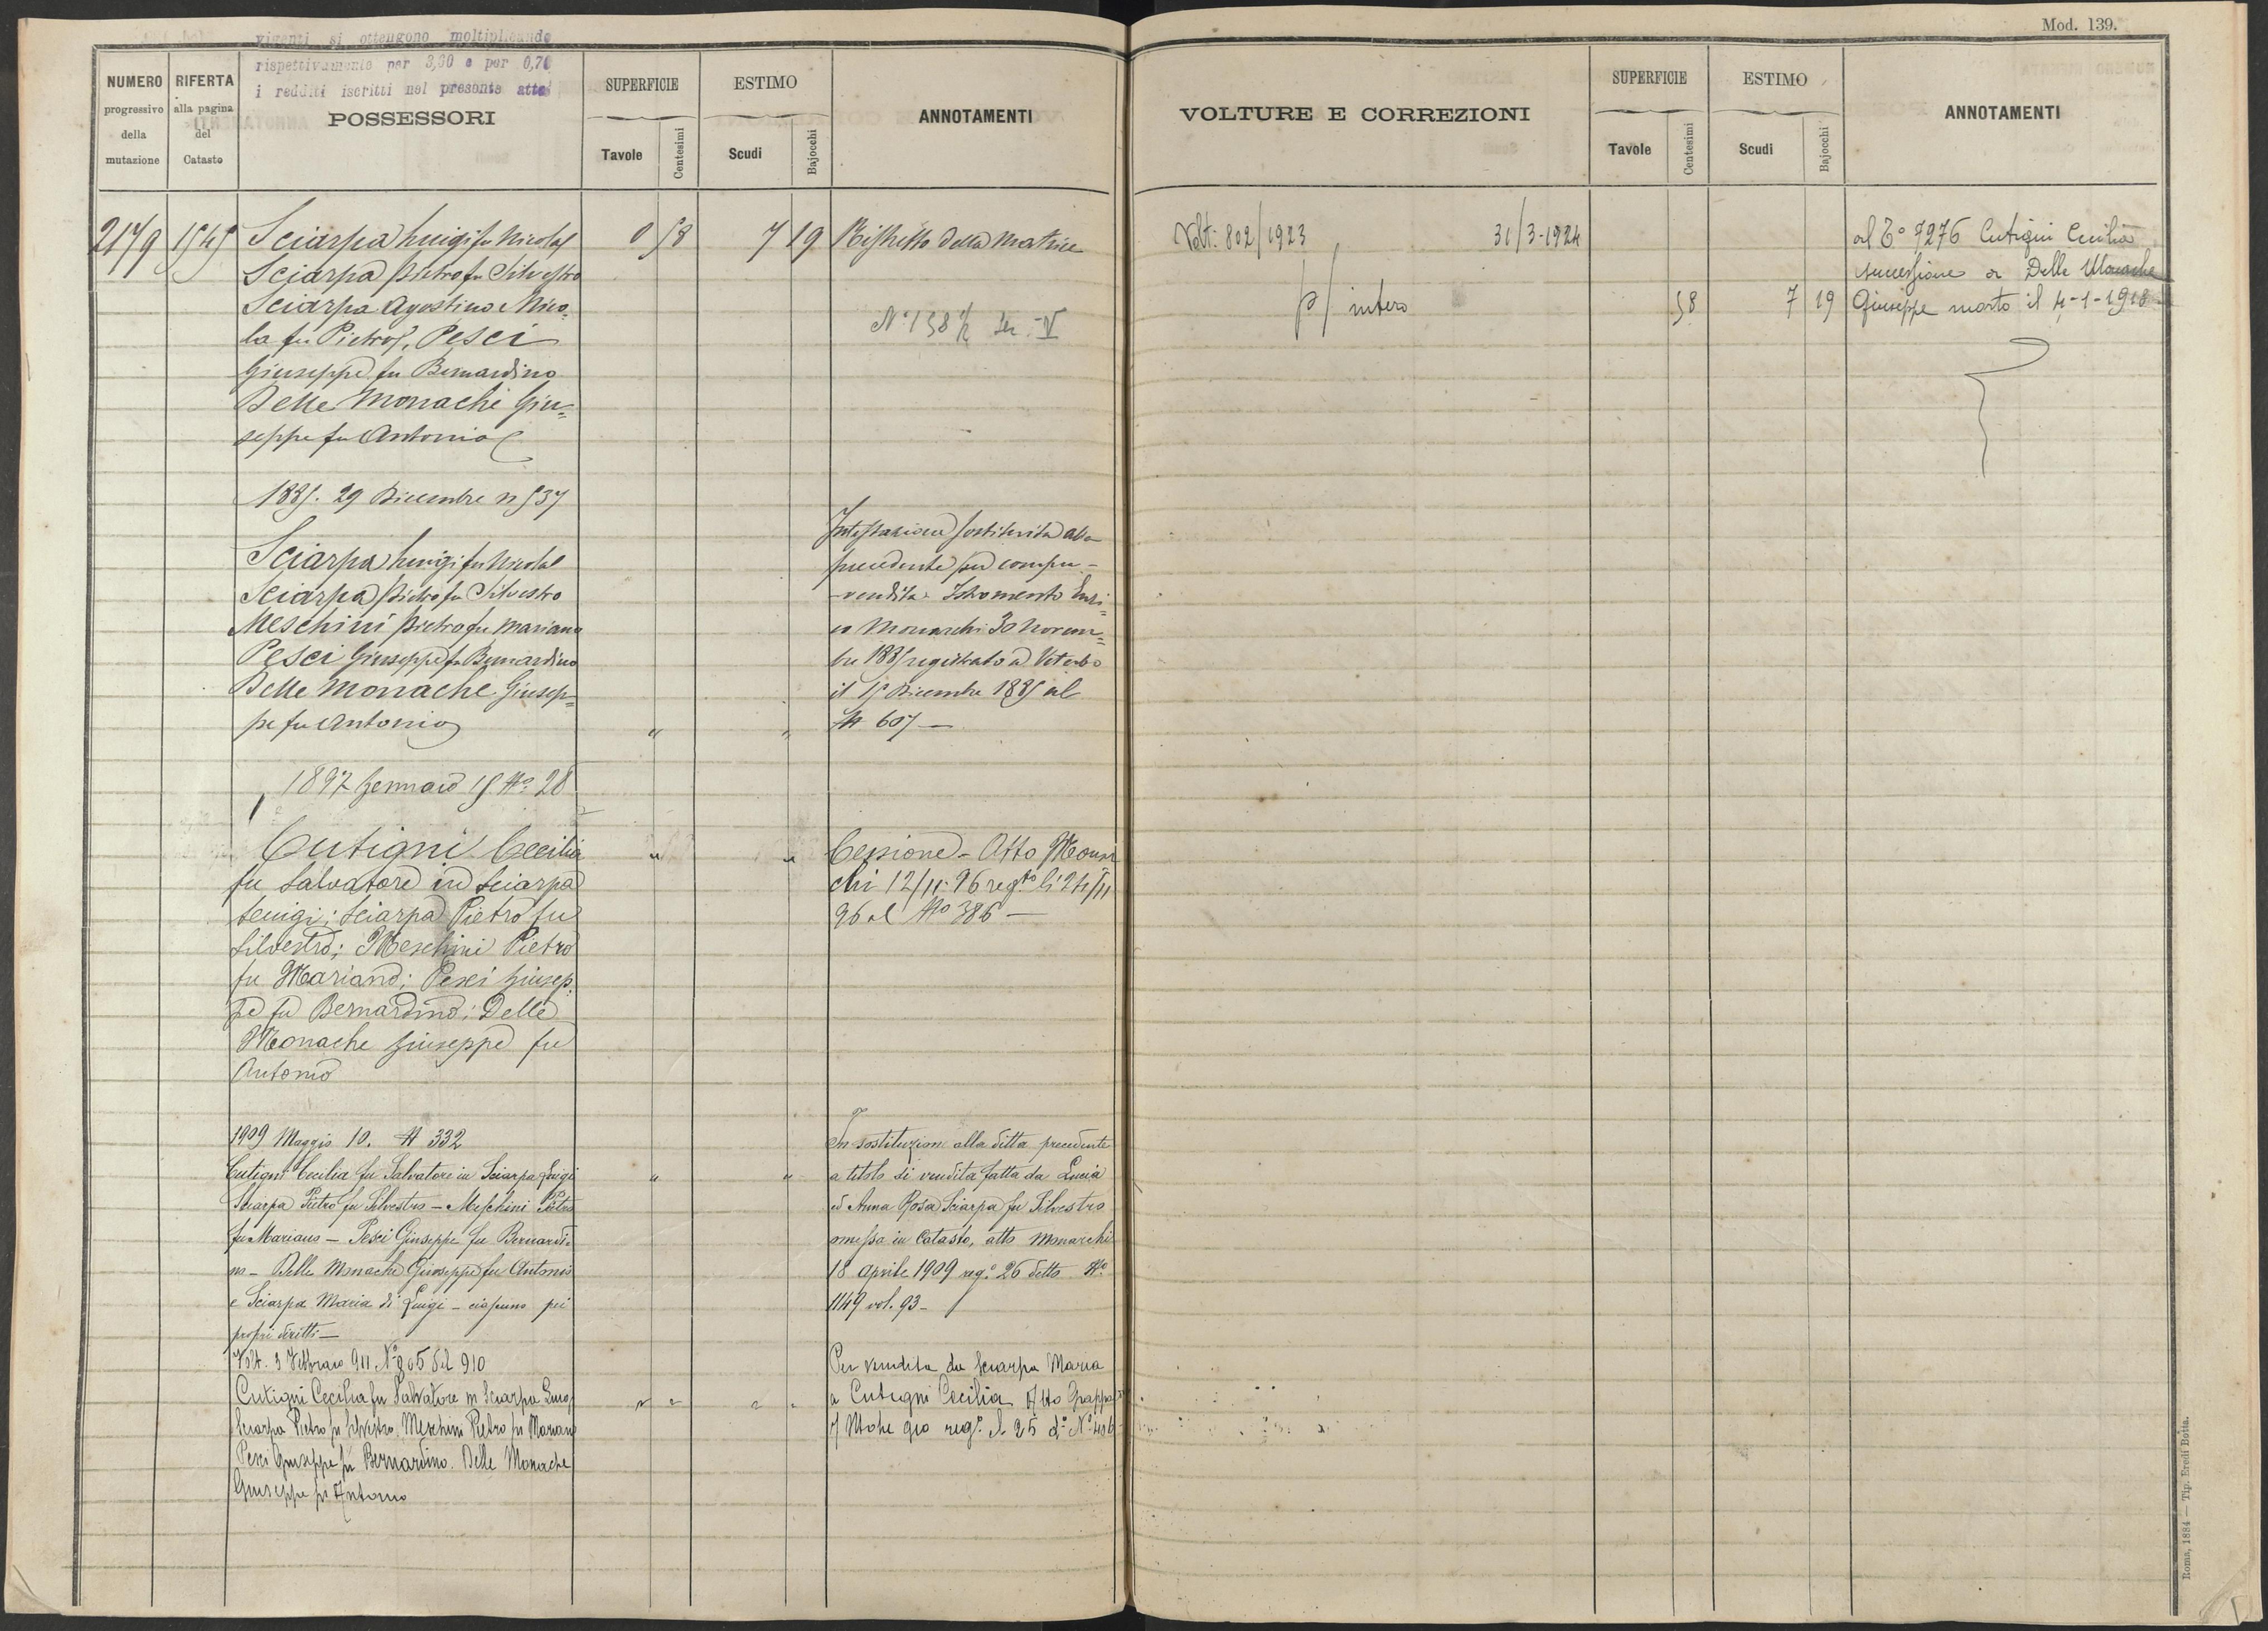 Mod. 139.
vigenti si ottengono moltiplicando
rispettivamente per 3,60 e per 0,70
i redditi iscritti nel presente atto
NUMERO
progressivo
della
mutazione
RIFERTA
alla pagina
del
Catasto
POSSESSORI
SUPERFICIE
Tavole
Centesimi
ESTIMO
Scudi
Bajocchi
ANNOTAMENTI
2179 1545 Sciarpa Luigi fu Nicola 0 58 7 19 Ristretto della Matrice
Sciarpa Pietro fu Silvestro
Sciarpa Agostino e Nico-
la fu Pietro, Pesci
Giuseppe fu Bernardino
Delle Monache Giu=
seppe fu Antonio
N° 158 1/2 Ser. V
1885. 29 Dicembre n 537
Sciarpa Luigi fu Nicola
Sciarpa Pietro fu Silvestro
Meschini Pietro fu Mariano
Pesci Giuseppe fu Bernardino
Delle Monache Giusep=
pe fu Antonio " "
Intestazione sostituita alla
precedente per compra-
vendita. Istromento Enri=
co Monarchi 30 Novem=
bre 1885 registrato a Viterbo
il 15 Dicembre 1885 al
N 607 —
1897 Gennaio 15 N° 28
Cutigni Cecilia " "
fu Salvatore in Sciarpa
Luigi; Sciarpa Pietro fu
Silvestro; Meschini Pietro
fu Mariano; Pesci Giusep-
pe fu Bernardino; Delle
Monache Giuseppe fu
Antonio
Cessione - Atto Monar
chi 12/11. 96 reg.to li 24/11
96 al N° 386 —
1909 Maggio 10. N 332
Cutigni Cecilia fu Salvatore in Sciarpa Luigi " "
Sciarpa Pietro fu Silvestro - Meschini Pietro
fu Mariano - Pesci Giuseppe fu Bernardi-
no - Delle Monache Giuseppe fu Antonio
e Sciarpa Maria di Luigi - ciascuno pei
propri diritti —
In sostituzion alla ditta precedente
a titolo di vendita fatta da Lucia
ed Anna Rosa Sciarpa fu Silvestro
omessa in Catasto, atto Monarchi
18 aprile 1909 reg.° 26 detto N°
1149 vol. 93 -
Volt. 3 Febbraio 911 N° 905 del 910
Cutigni Cecilia fu Salvatore in Sciarpa Luigi " " " "
Sciarpa Pietro fu Silvestro. Meschini Pietro fu Mariano
Pesci Giuseppe fu Bernardino. Delle Monache
Giuseppe fu Antonio
Per vendita da Sciarpa Maria
a Cutigni Cecilia Atto
910 reg.° il 25 d.°
VOLTURE E CORREZIONI
SUPERFICIE
Tavole
Centesimi
ESTIMO
Scudi
Bajocchi
ANNOTAMENTI
Volt: 802/1923 31/3-1924
p/ intero 58 7 19
al T° 7276 Cutigni Cecilia
successione a Delle Monache
Giuseppe morto il 4-1-1918
Roma, 1884 — Tip. Eredi Botta.